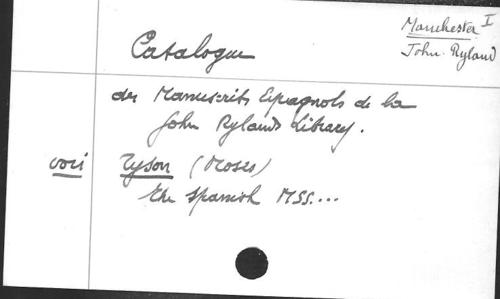 Manchester I
John Ryland
Catalogue
des Manuscrits Espagnols de la
John Rylands Library.
voir Tyson (Moses)
The Spanish MSS....